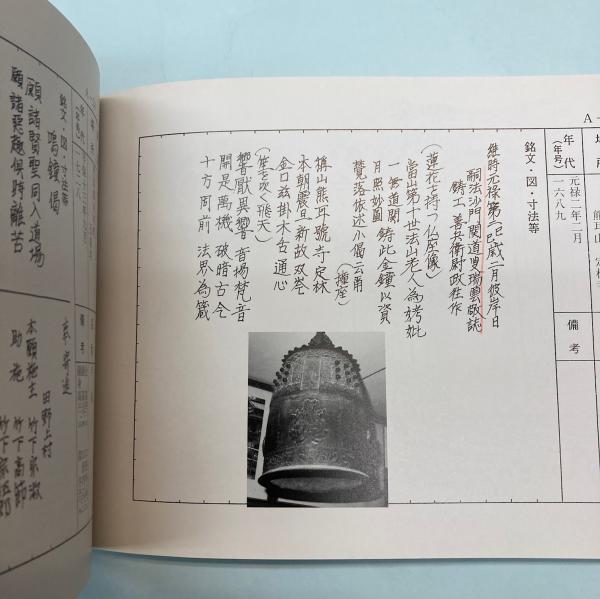 A-
年代
(年号)
元禄二年二月
一六八九
備考
銘文・図・寸法等
維時元禄第二己巳歳二月彼岸日
嗣法沙門関道叟瑞雲敬誌
鋳工善兵衛尉政牲作
(蓮花を持つ仏座像)
當山第十世法山老人為考妣
一管道関鋳此金鐘以資
月照妙圓
賛落依述小偈云爾
(撞座)
稱山熊耳號寺定林
本朝震旦新故双岑
金口茲掛木舌通心
(笙を吹く飛天)
響厭異響 音揚梵音
開是萬機 破暗古今
十方同前 法界為箴
銘文・図・寸法等
鳴鐘偈
願諸賢聖同入道場
願諸悪趣倶時離苦
奉寄進
田野上村
本願施主
助施 竹下高節
備考